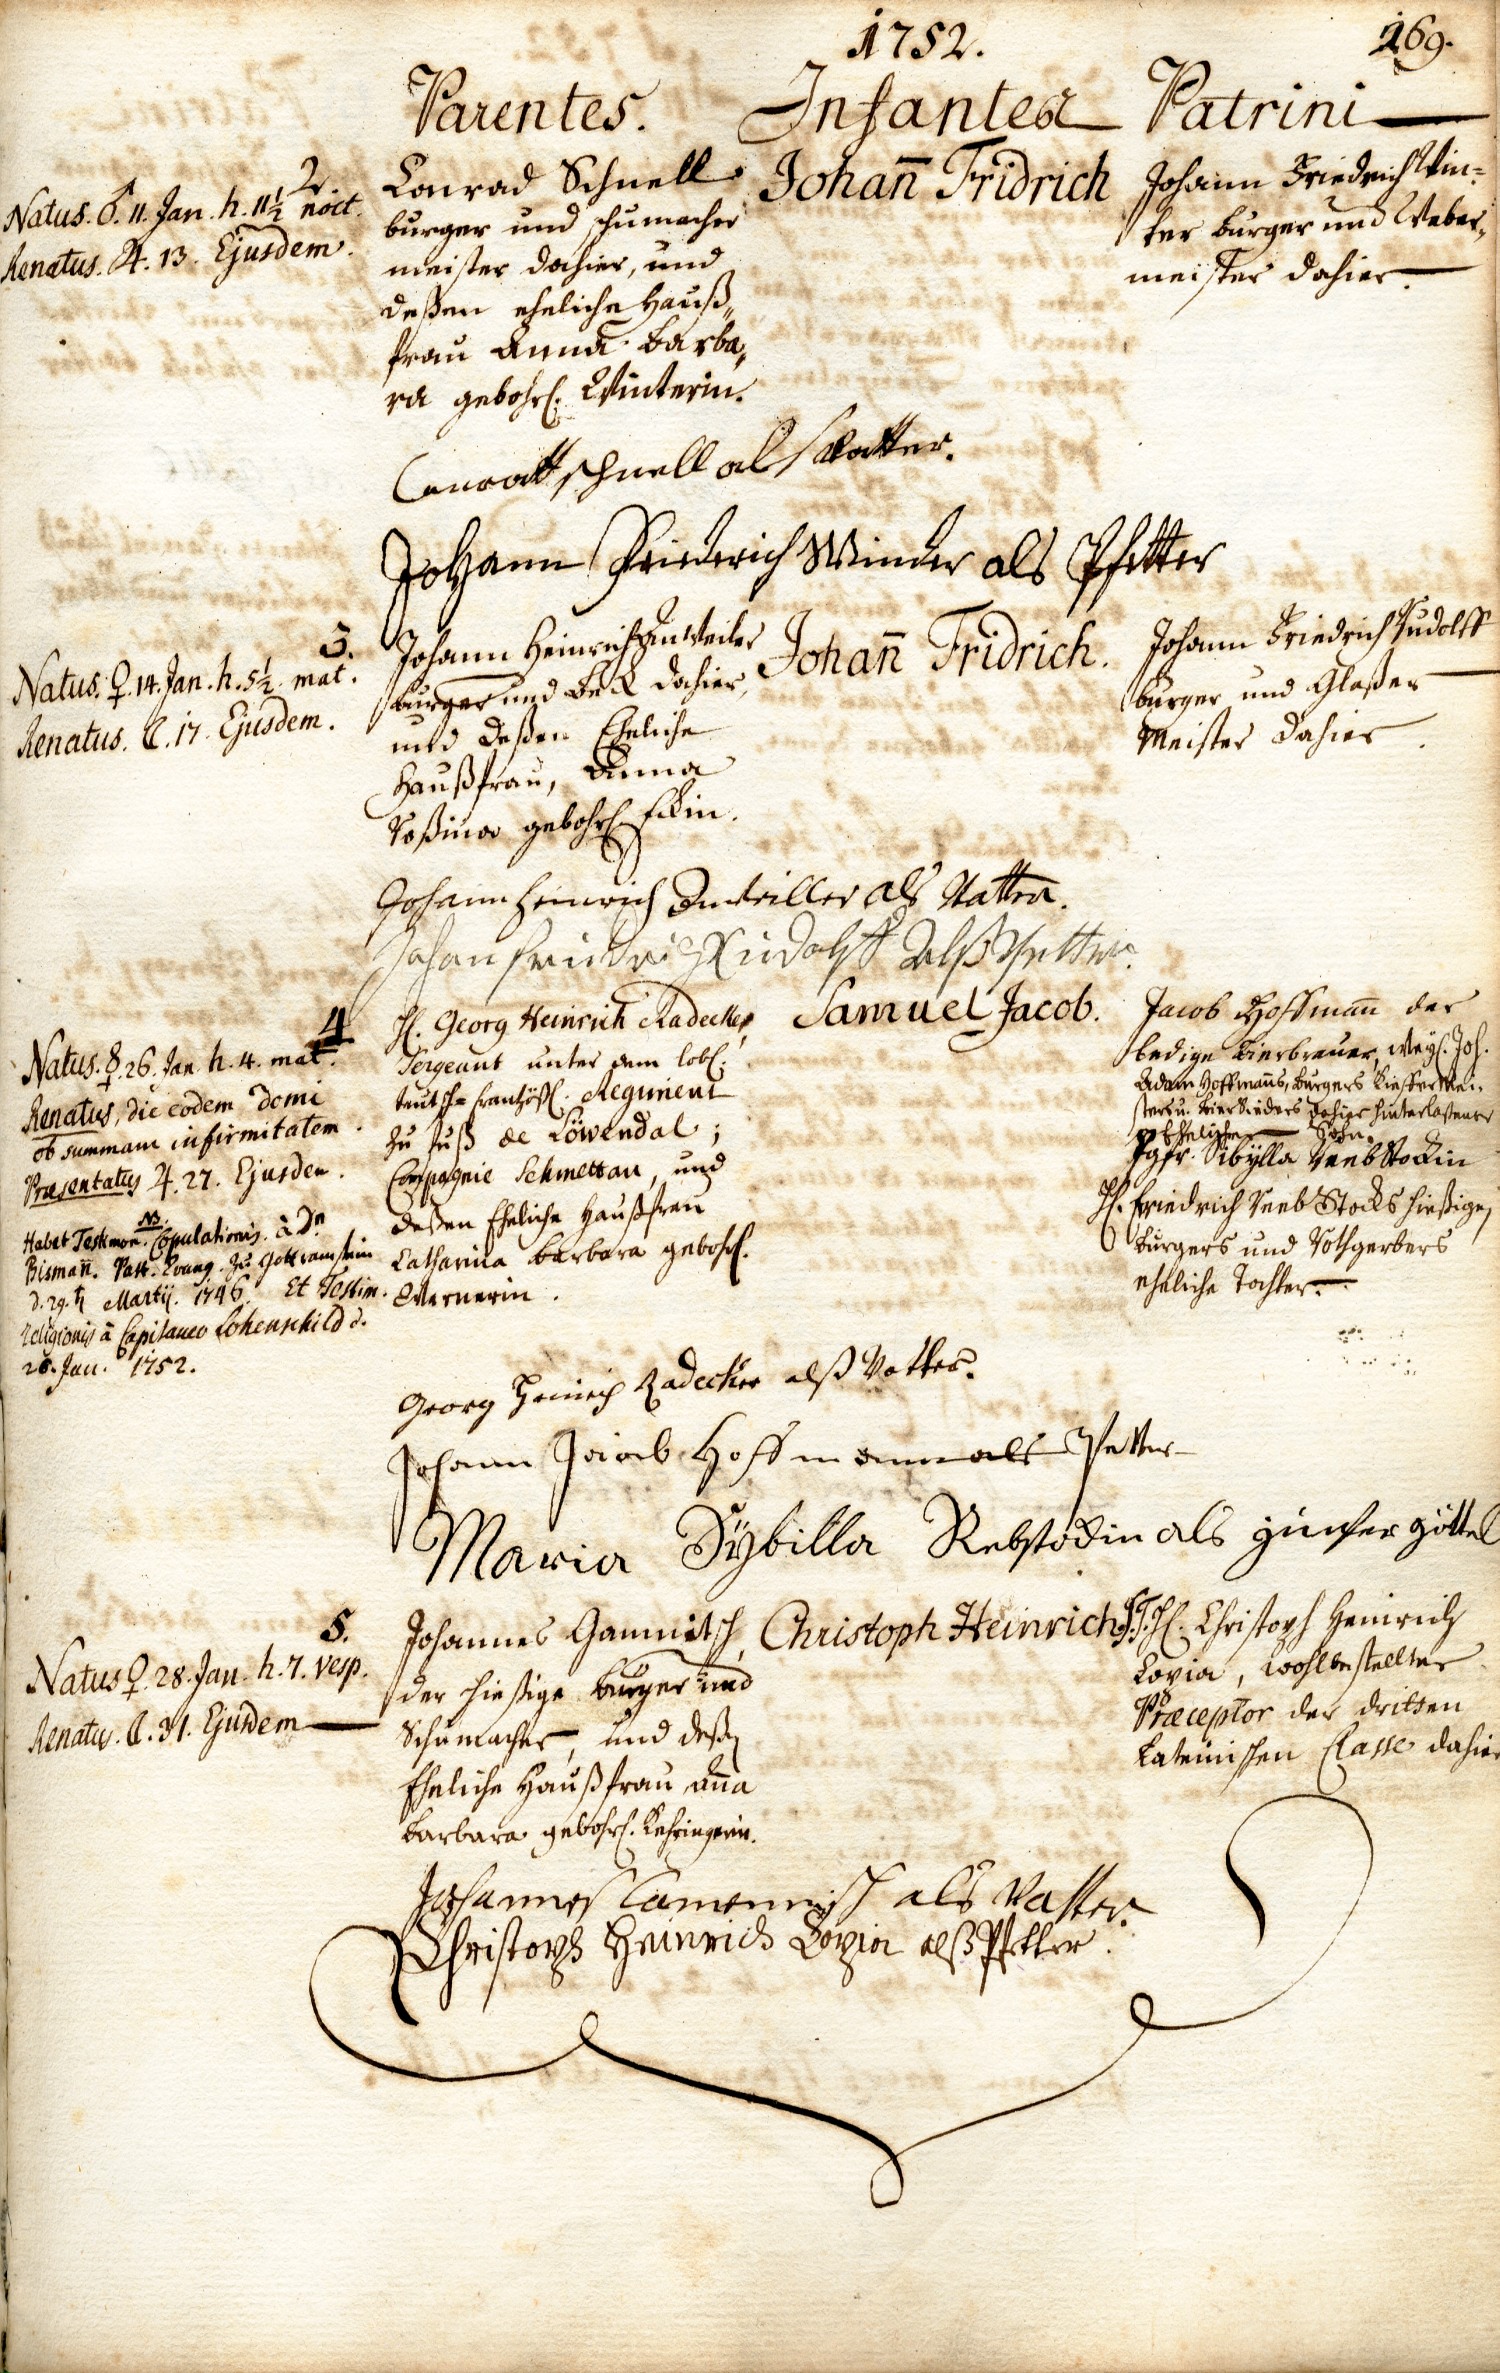 1752.
169.
Parentes. Infantes Patrini
2.
Natus. ♂. 11. Jan. h. 11½ noct.
Renatus. ♃. 13. Ejusdem.
Conrad Schnell
burger und schumacher
meister dahier, und
deßen eheliche Hauß„
frau Anna Barba„
ra gebohr. Winterin.
Johañ Fridrich
Johann Friedrich Win=
ter burger und Weber„
meister dahier.
Conratt schnell als Vatter.
Johann Friederich Winder als Pfetter
3.
Natus. ♀. 14. Jan. h. 5½ mat.
Renatus. ☾. 17. Ejusdem.
Johann Heinrich Imweiler
burger und Beck dahier,
und deßen Eheliche
Haußfrau, Anna
Roßina gebohr.
Johañ Fridrich.
Johann Friedrich Rudolff
burger und Glaßer
Meister dahier.
Johann Heinrich als Vatter.
Johan Friedrich Rudolff Alß Pfetter.
4
Natus. ☿. 26. Jan. h. 4. mat.
Renatus, die eodem domi
ob summam infirmitatem.
Præsentatus ♃. 27. Ejusdem.
NB.
Habet Testimon. Copulationis. à Dn
Bismañ. Past. Evang. zu Gottramstein
d. 29. ♄ Martij. 1746. Et Testim.
religionis à Capitaneo Lohenschild d.
26. Jan. 1752.
H. Georg Heinrich Radecker,
Sergeant unter dem lobl.
teutsch= frantzöß. Regiment
zu fuß de Löwendal;
Compagnie Schmettau, und
deßen Eheliche Haußfrau
Catharina Barbara gebohr.
Wernerin.
Samuel Jacob.
Jacob Hoffmañ der
ledige Bierbrauer, Weyl. Joh.
Adam Hoffmañs, burgers Kieffermei-
sters u. Biersieders dahier hinterlaßener
Eheliche Sohn.
Jgfr. Sibylla Reebstockin
H. Friedrich Reebstocks hießigen
burgers und Rothgerbers
eheliche Tochter.
Georg Heinrich Radecker alß Vatter.
Johann Jacob Hoffmann als Petter
Maria Sybilla Rebstockin als göttel
5.
Natus ♀. 28. Jan. h. 7. vesp.
Renatus. ☾. 31. Ejusdem
Johannes Gammitsch,
der hießige burger und
Schumacher, und deßen
Eheliche Haußfrau Aña
Barbara gebohr. Kehringerin.
Christoph Heinrich
S. T. H. Christoph Heinrich
Lovia, wohlbestellter
Præceptor der dritten
Lateinischen Classe dahier
Johannes als Vatter.
Christoph Heinrich Lovia alß Pfetter.